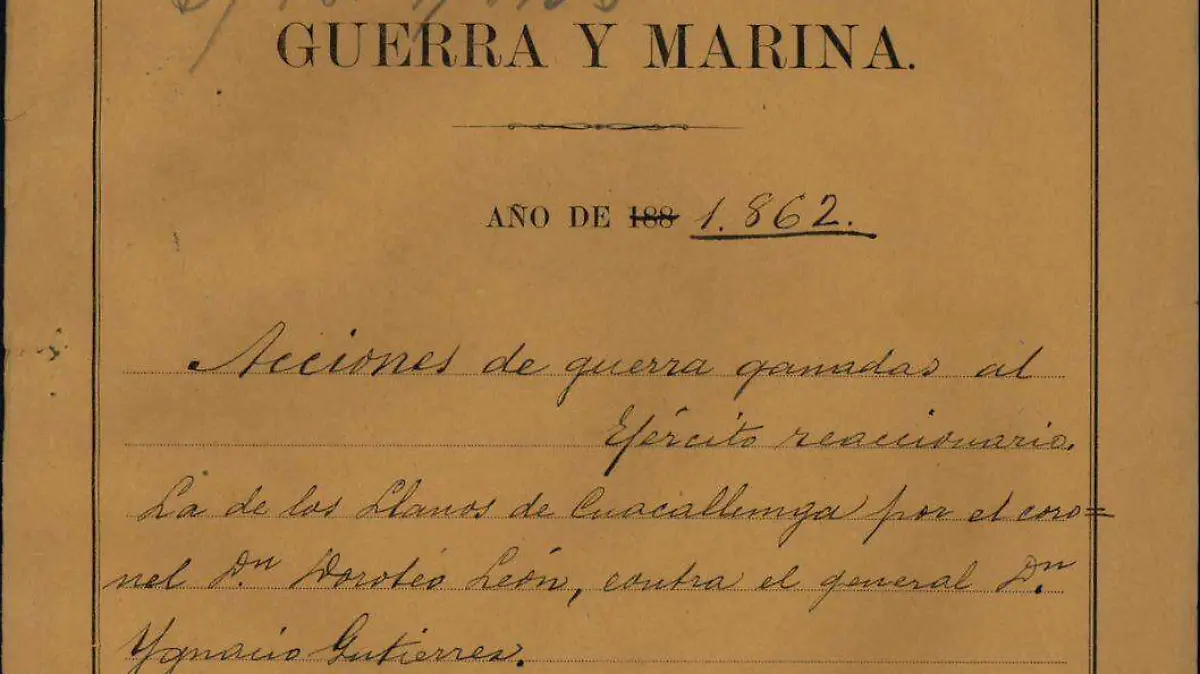 GUERRA Y MARINA.
AÑO DE 188 1.862.
Acciones de guerra ganadas al
Ejército reaccionario.
La de los Llanos de Cuacallunga por el coro=
nel Dn Doroteo León, contra el general Dn.
Ygnacio Gutierres.